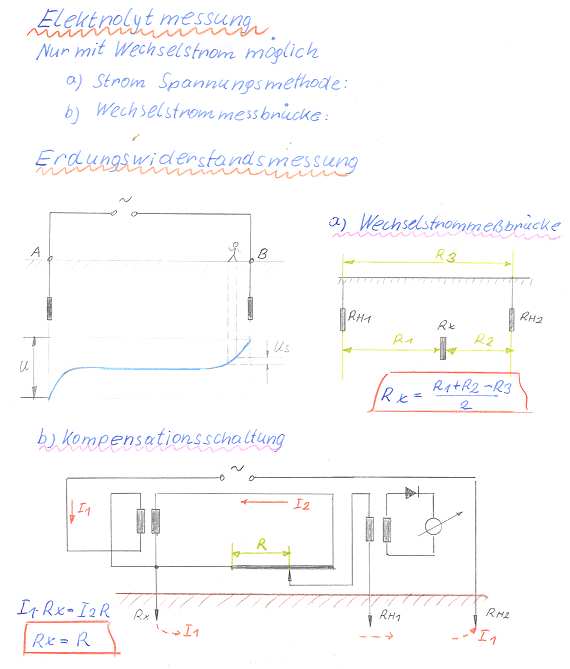 Elektrolytmessung
Nur mit Wechselstrom möglich
a) Strom Spannungsmethode:
b) Wechselstrommessbrücke:
Erdungswiderstandsmessung
~
A
B
U
Us
a) Wechselstrommeßbrücke
R3
RH1
Rx
RH2
R1
R2
Rx = R1+R2-R3
2
b) Kompensationsschaltung
~
I1
I2
R
I1·Rx = I2R
Rx = R
Rx
I1
RH1
RH2
I1